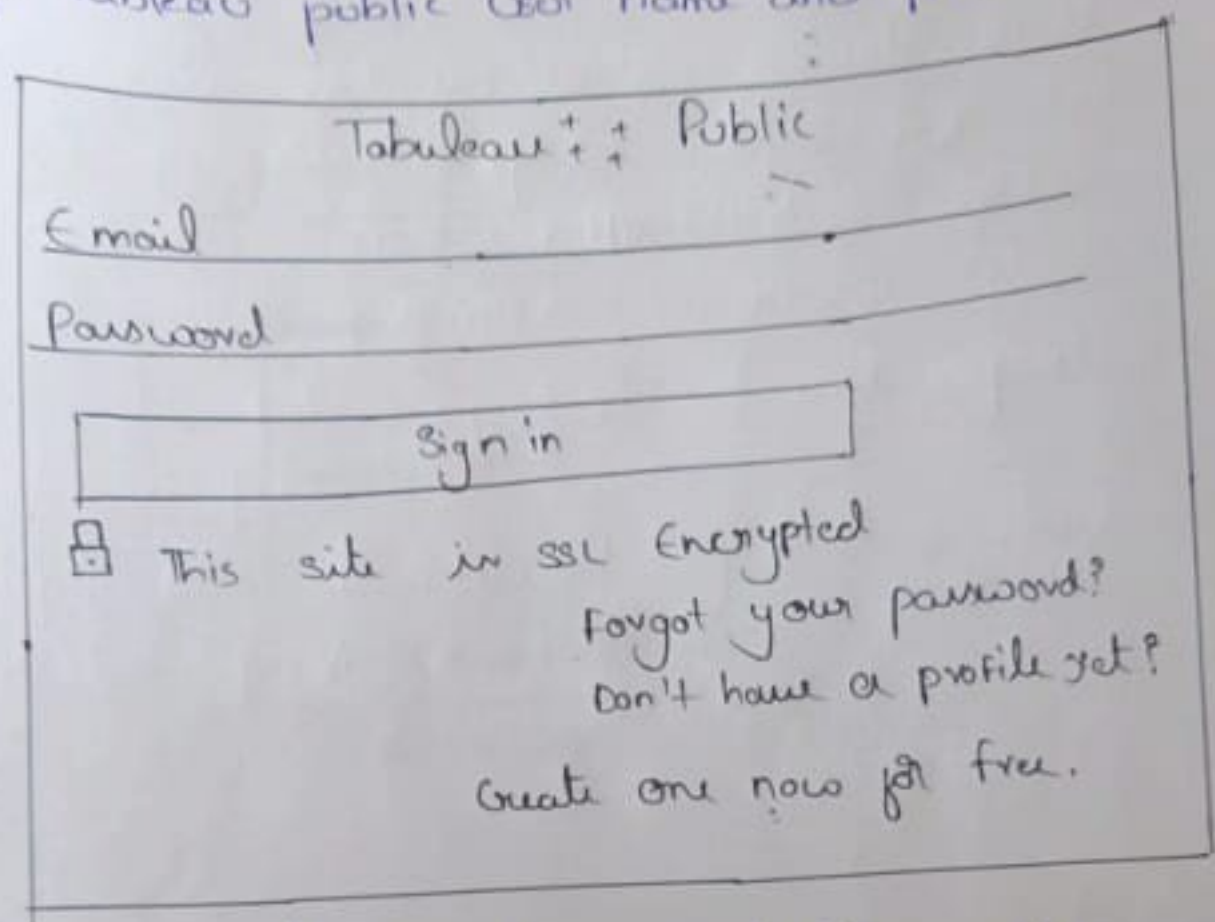 public
Tabuleau Public
Email
Password
Sign in
This site is SSL Encrypted
Forgot your password?
Don't have a profile yet?
Create one now for free.